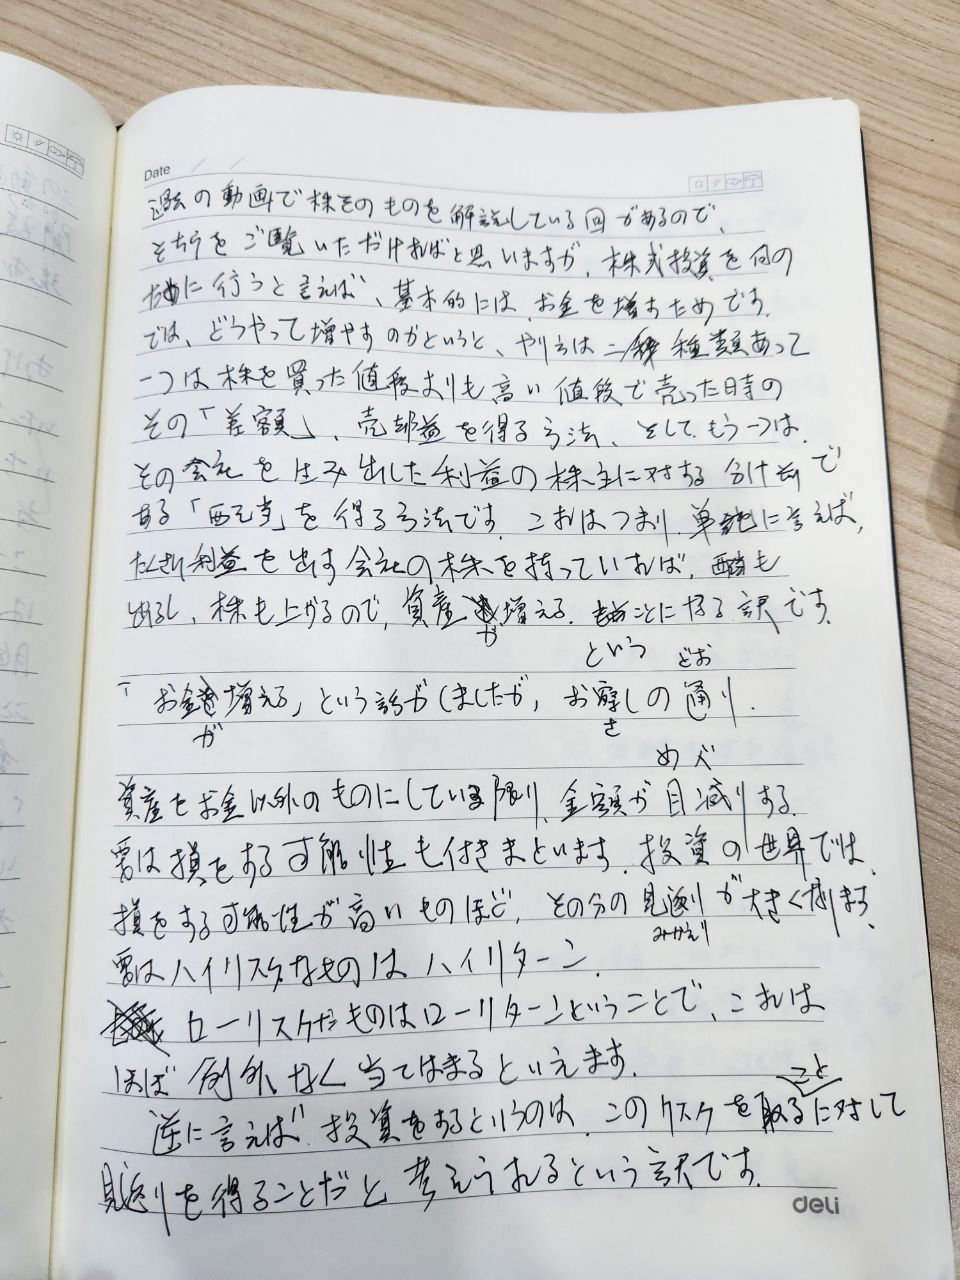 Date / /
過去の動画で株そのものを解説している回があるので、
そちらをご覧いただければと思いますが、株式投資を何の
ために行うと言えば、基本的には、お金を増すためです。
では、どうやって増やすのかというと、やり方は二種類あって
一つは株を買った値段よりも高い値段で売った時の
その「差額」、売却益を得る方法、そして、もう一つは、
その会社を生み出した利益の株主に対する分け前で
ある「配当」を得る方法です。これはつまり、単純に言えば、
たくさん利益を出す会社の株を持っていれば、配当も
出るし、株も上がるので、資産が増える、ことになる訳です。
が という どお
「お金増える」という話がしましたが、お察しの通り、
が さ
めべ
資産をお金以外のものにしている限り、金額が目減りする、
要は損をする可能性も付きまといます。投資の世界では、
損をする可能性が高いものほど、その分の見返りが大きく
みかえり
要はハイリスクなものはハイリターン、
ローリスクなものはローリターンということで、これは
ほぼ例外なく当てはまるといえます。
こと
逆に言えば、投資をするというのは、このリスクを取るに対して
見返りを得ることだと考えられるという訳です。
deli